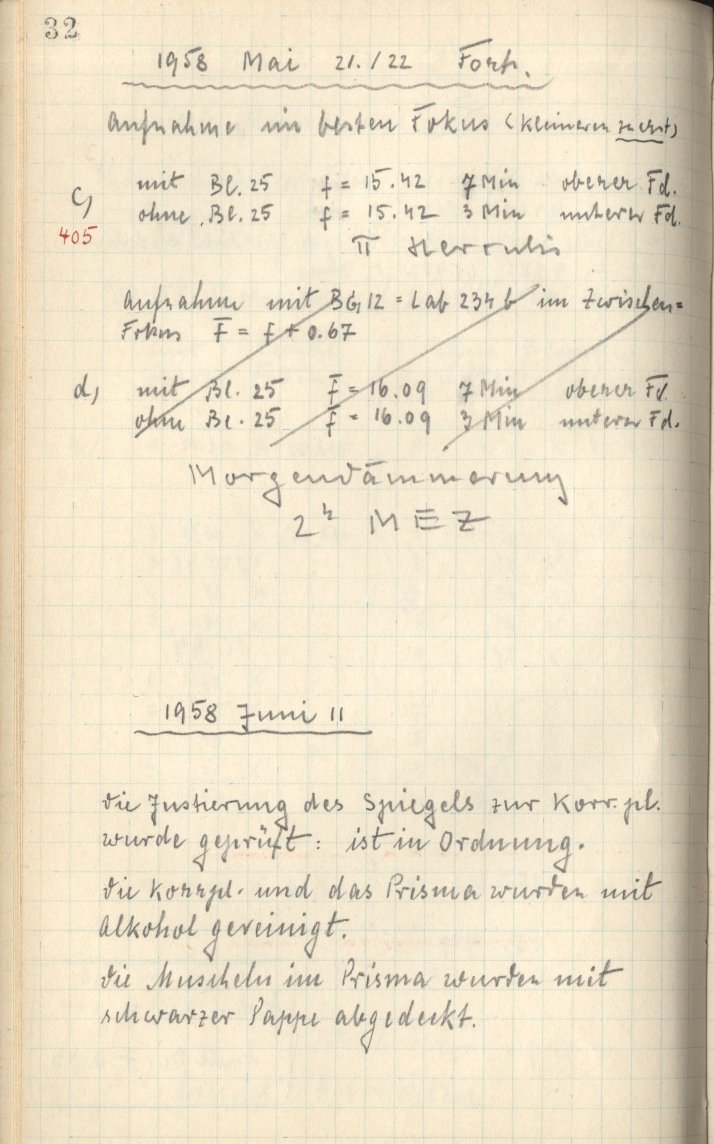 32
1958 Mai 21./22 Forts.
Aufnahme im besten Fokus (kleineren zuerst)
c, mit Bl. 25 f = 15.42 7 Min oberer Fd.
405 ohne Bl. 25 f = 15.42 3 Min unterer Fd.
π Herculis
Aufnahme mit BG 12 = Lab 234 b im Zwischen=
Fokus F = f + 0.67
d, mit Bl. 25 F = 16.09 7 Min oberer Fd.
ohne Bl. 25 F = 16.09 3 Min unterer Fd.
Morgendämmerung
2h MEZ
1958 Juni 11
Die Justierung des Spiegels zur Korr.pl.
wurde geprüft: ist in Ordnung.
Die Korrpl. und das Prisma wurden mit
Alkohol gereinigt.
Die Muscheln im Prisma wurden mit
schwarzer Pappe abgedeckt.